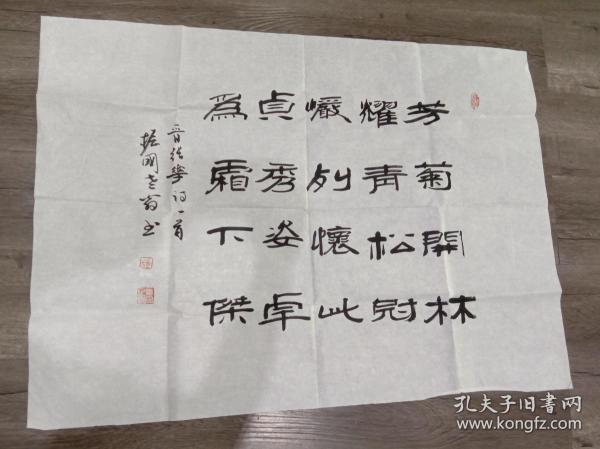 芳菊開林
耀青松冠
巖列懷此
貞秀姿卓
爲霜下傑
一首
國老翁书
孔夫子旧書网
www.kongfz.com